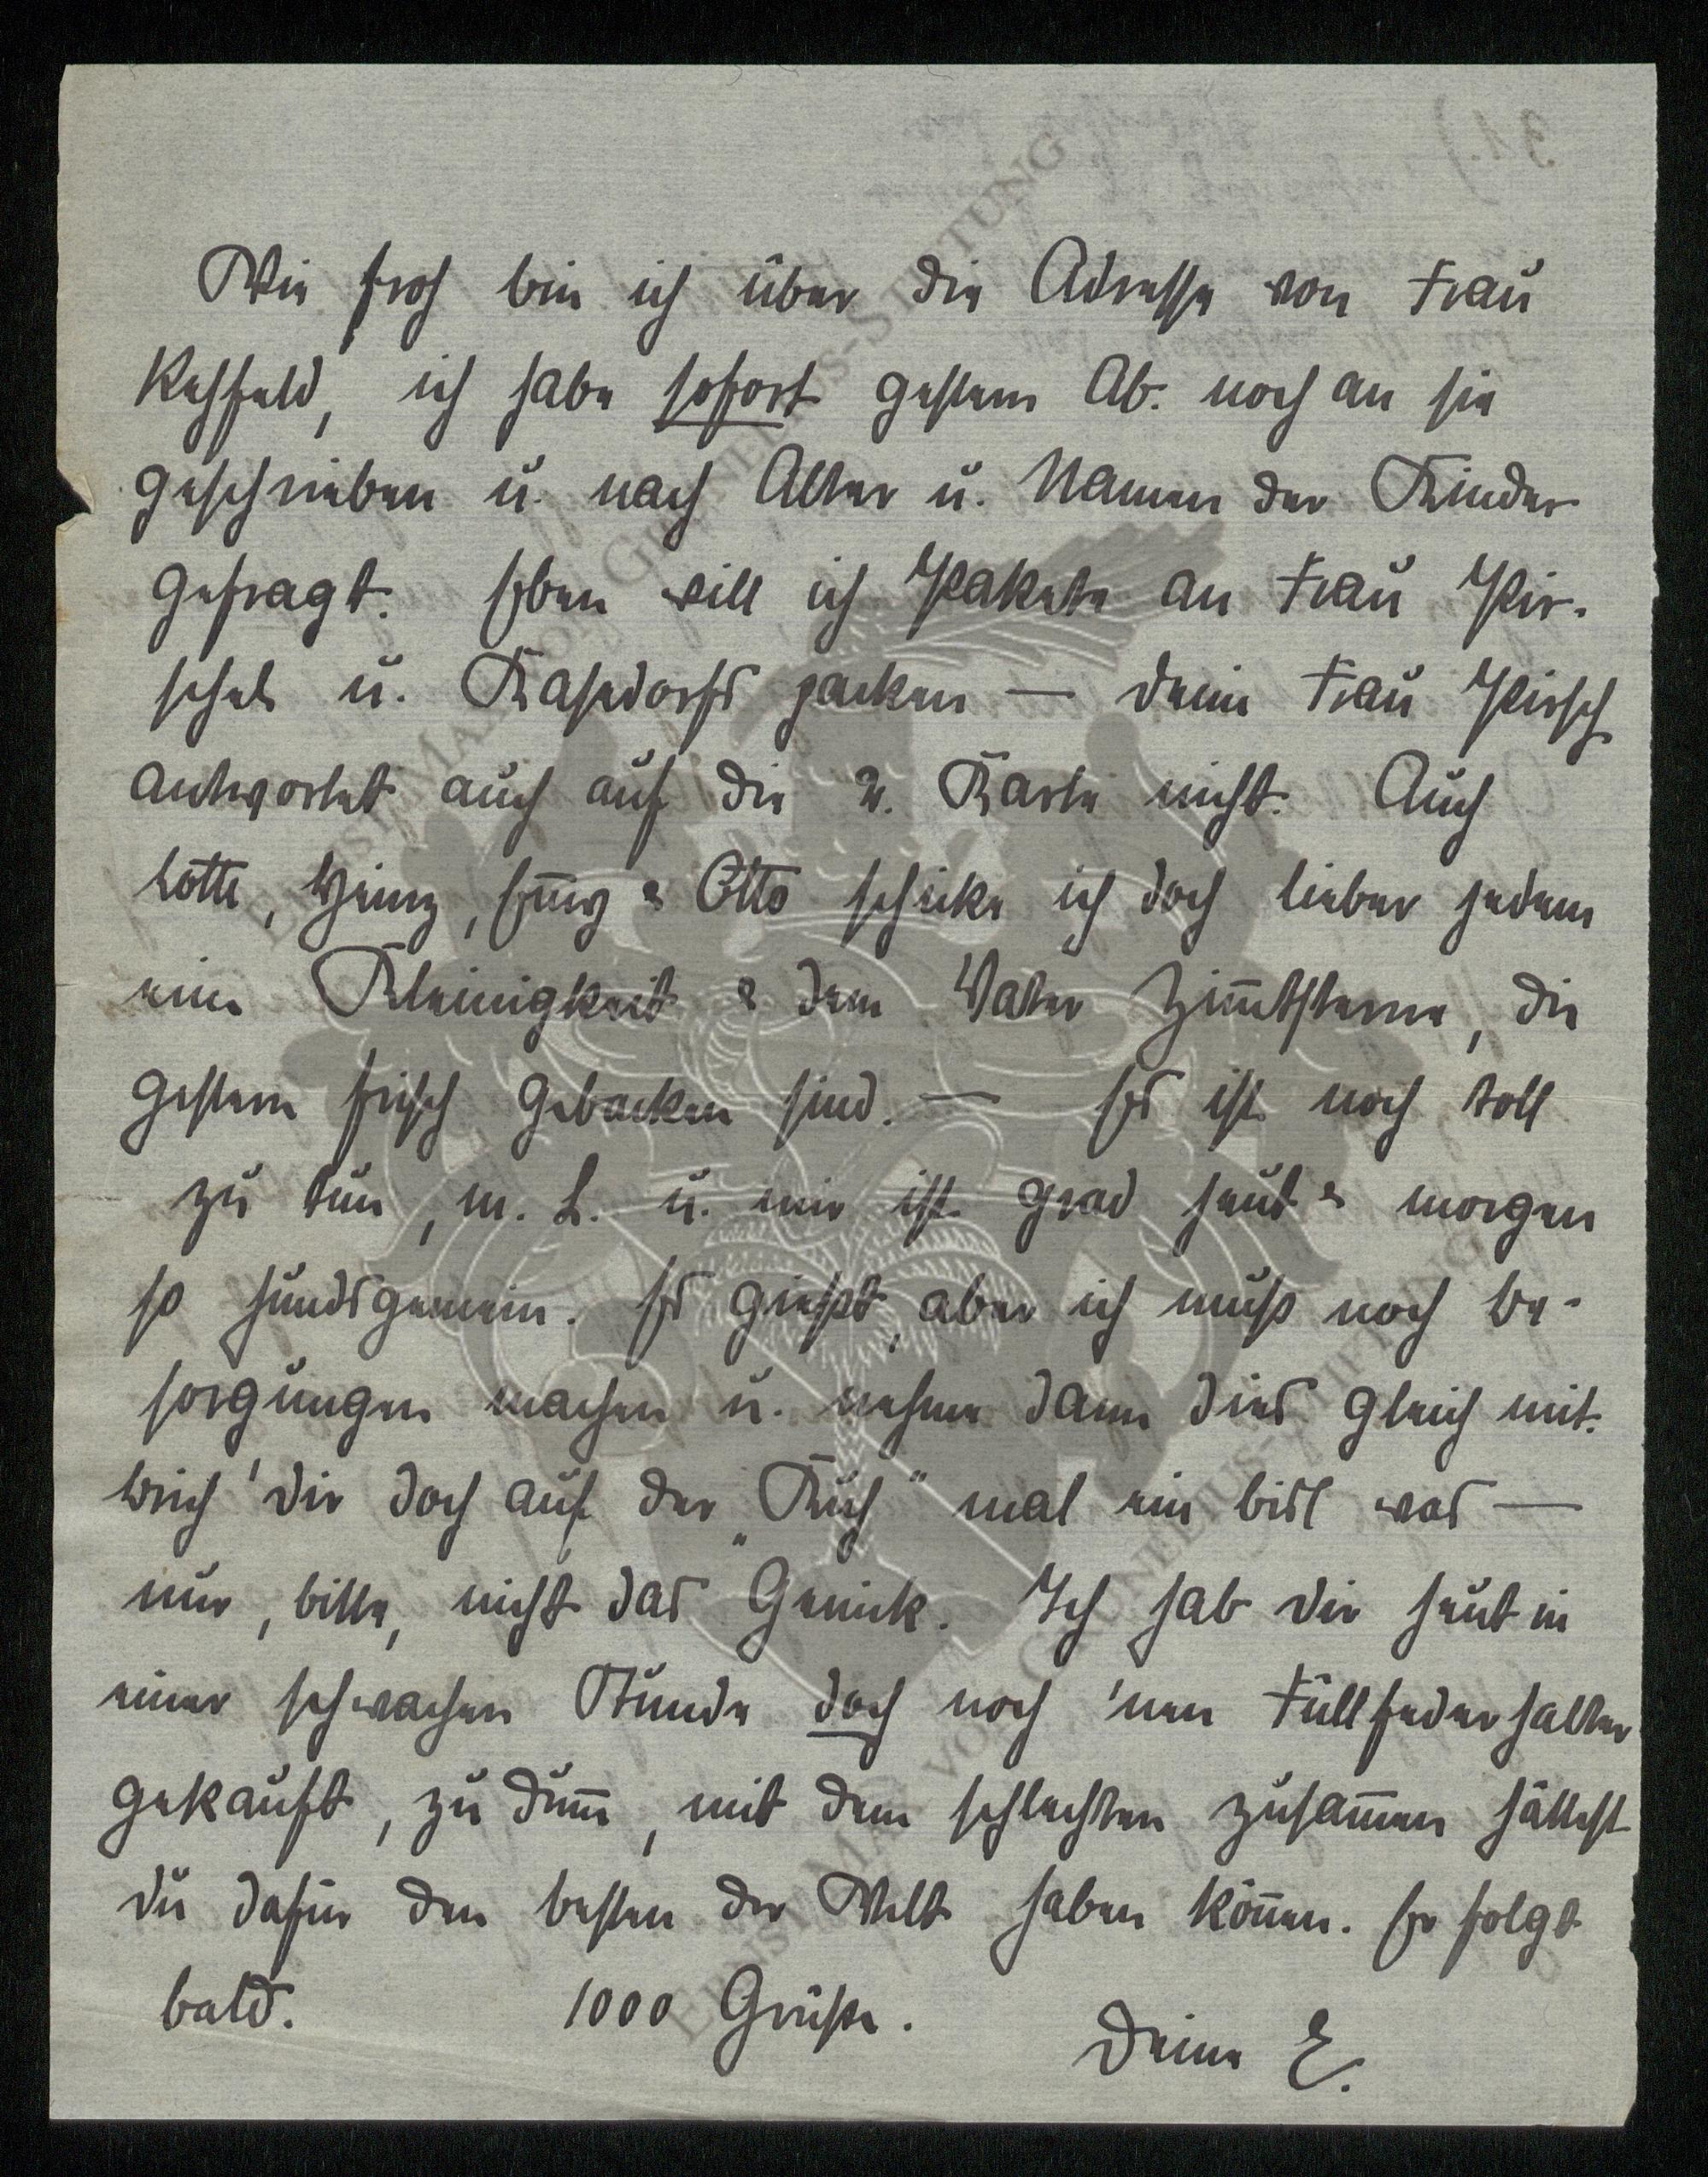 Wie froh bin ich über die Adresse von Frau
Rehfeld, ich habe sofort gestern Ab. noch an sie
geschrieben u. nach Alter u. Namen der Kinder
gefragt. Eben will ich Pakete an Frau Pir-
schel u. Kasedorfs packen — denn Frau Pirsch
antwortet auch auf die 2. Karte nicht. Auch
Lotte, Heinz, & Otto schicke ich doch lieber jedem
eine Kleinigkeit & dem Vater Zim̄tsterne, die
gestern frisch gebacken sind. — Es ist noch toll
zu tun, m. L. u. mir ist grad heut & morgen
so hundsgemein. Es gießt, aber ich muß noch Be-
sorgungen machen u. nehme dann dies gleich mit.
Brich' dir doch auf der „Kuh" mal ein bisl was —
nur, bitte, nicht das Genick. Ich hab dir heut in
einer schwachen Stunde doch noch 'nen Füllfederhalter
gekauft, zu dum̄, mit dem schlechten zusam̄en hättest
du dafür den besten der Welt haben kön̄en. Er folgt
bald. 1000 Grüße.
Deine E.
ERNST MAX VON GRUNELIUS-STIFTUNG
ERNST MAX VON GRUNELIUS-STIFTUNG